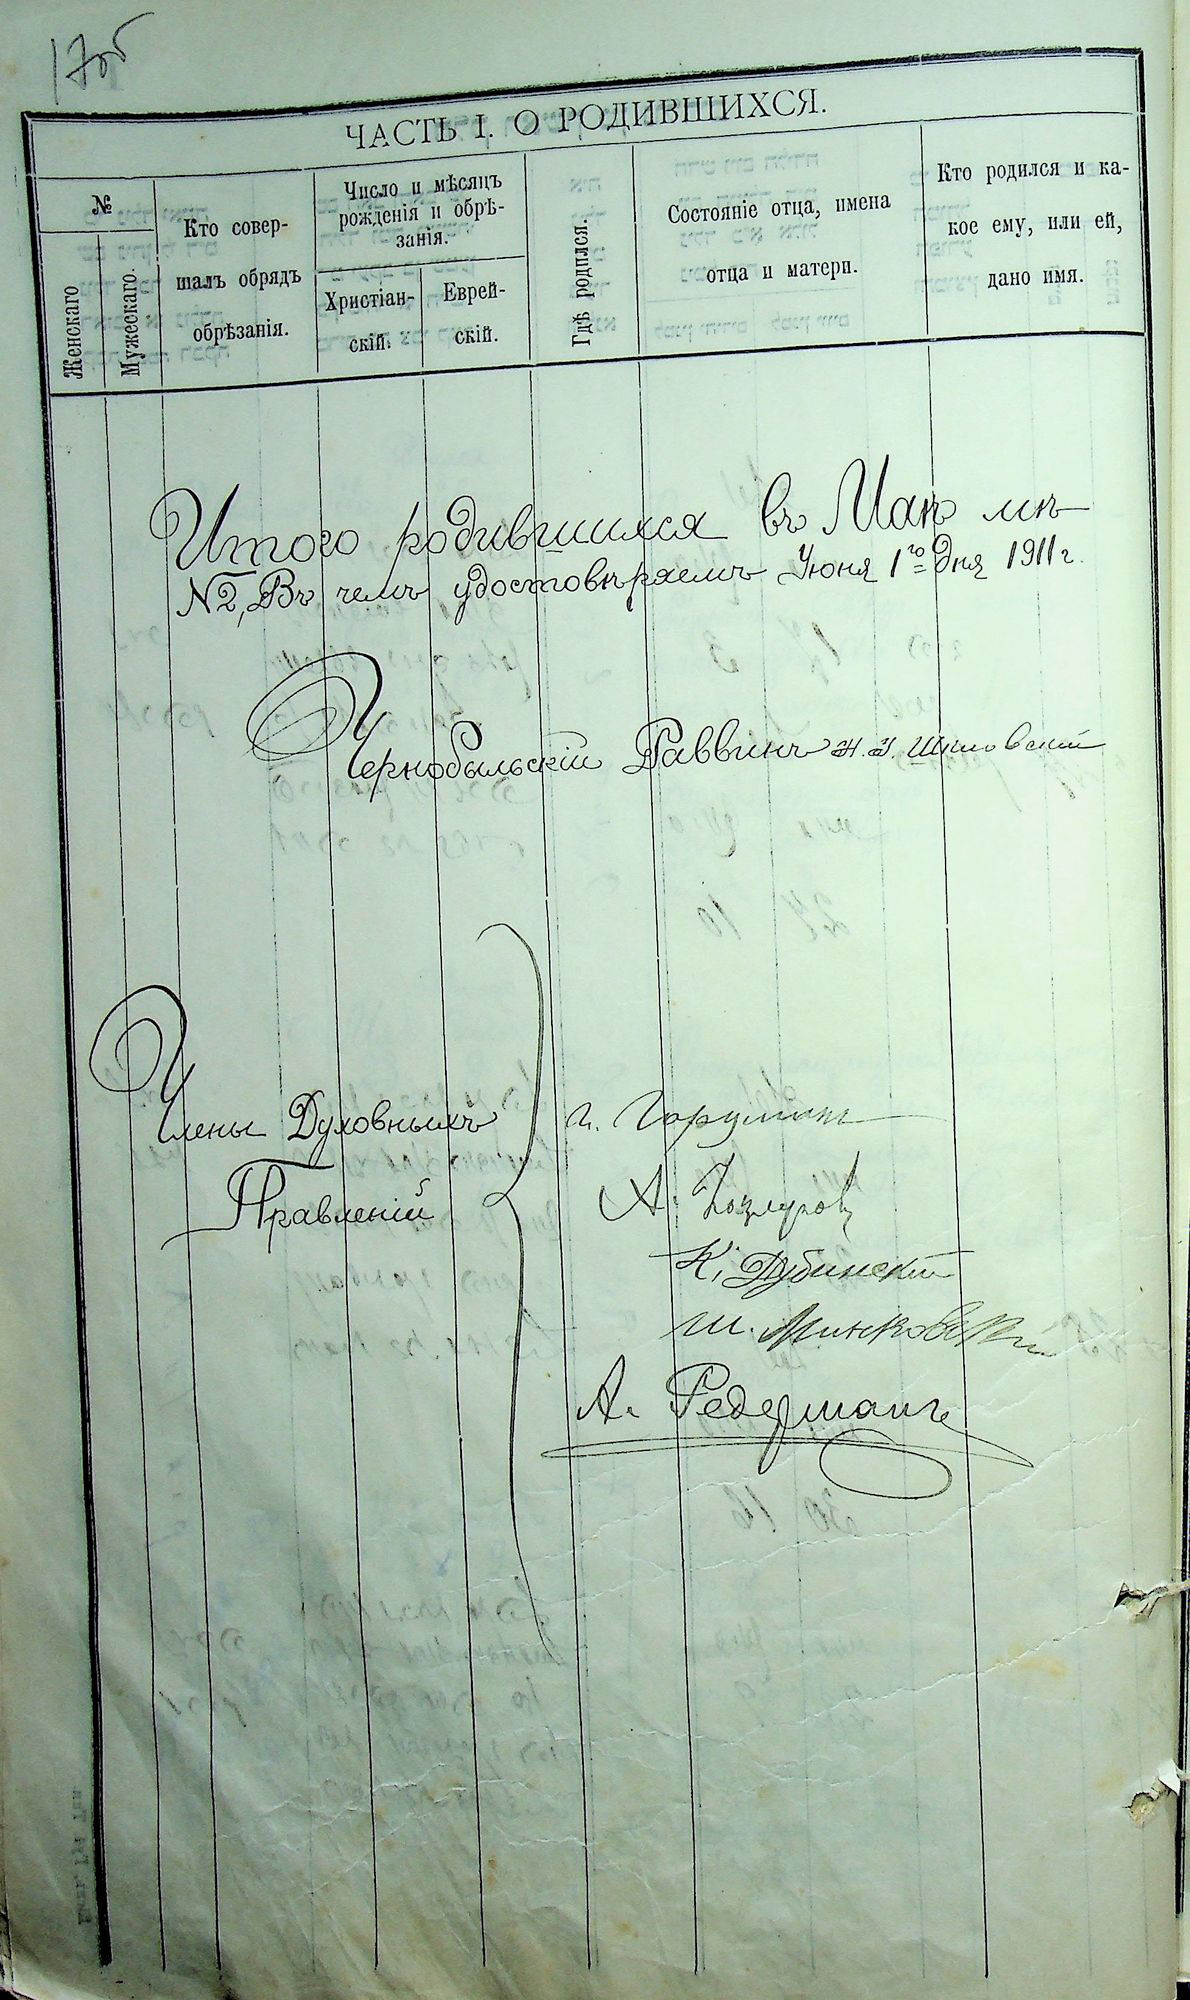 17об
ЧАСТЬ I. О РОДИВШИХСЯ.
№
Женскаго
Мужескаго.
Кто совер-
шалъ обрядъ
обрѣзанія.
Число и мѣсяцъ
рожденія и обрѣ-
занія.
Христіан-
скій.
Еврей-
скій.
Гдѣ родился.
Состояніе отца, имена
отца и матери.
Кто родился и ка-
кое ему, или ей,
дано имя.
Итого родившихся въ Маѣ м-цѣ
№2, Въ чемъ удостовѣряемъ Іюня 1го дня 1911 г.
Чернобыльскій Раввинъ
Члены Духовныхъ
Правленій
К. Дубинскій
Ш. Минковскій
А. Редерманъ